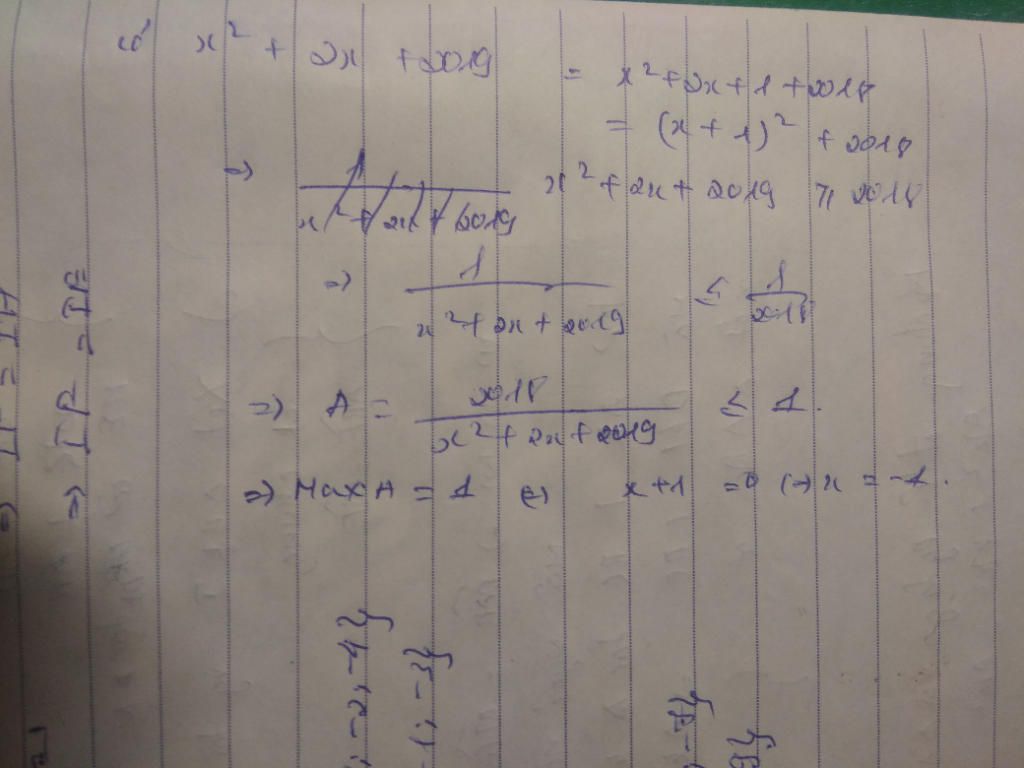 có x² + 2x + 2019 = x² + 2x + 1 + 2018
= (x + 1)² + 2018
=> x² + 2x + 2019 ≥ 2018
=> 1 / (x² + 2x + 2019) ≤ 1/2018
=> A = 2018 / (x² + 2x + 2019) ≤ 1.
=> Max A = 1 <=> x + 1 = 0 <=> x = -1.